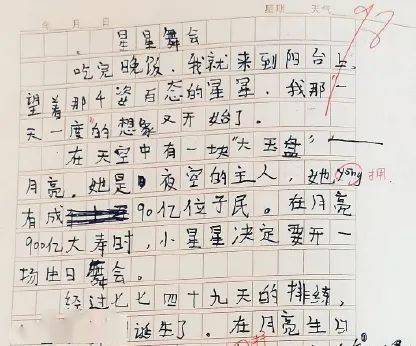 年 月 日 星期 天气
98
星星舞会
吃完晚饭，我就来到阳台上，
望着那千姿百态的星星，我那“一
天一度”的想象又开始了。
在天空中有一块“大玉盘”——
月亮。她是夜空的主人，她yong拥
有成90亿位子民。在月亮
900亿大寿时，小星星决定要开一
场生日舞会。
经过七七四十九天的排练，
诞生了。在月亮生日